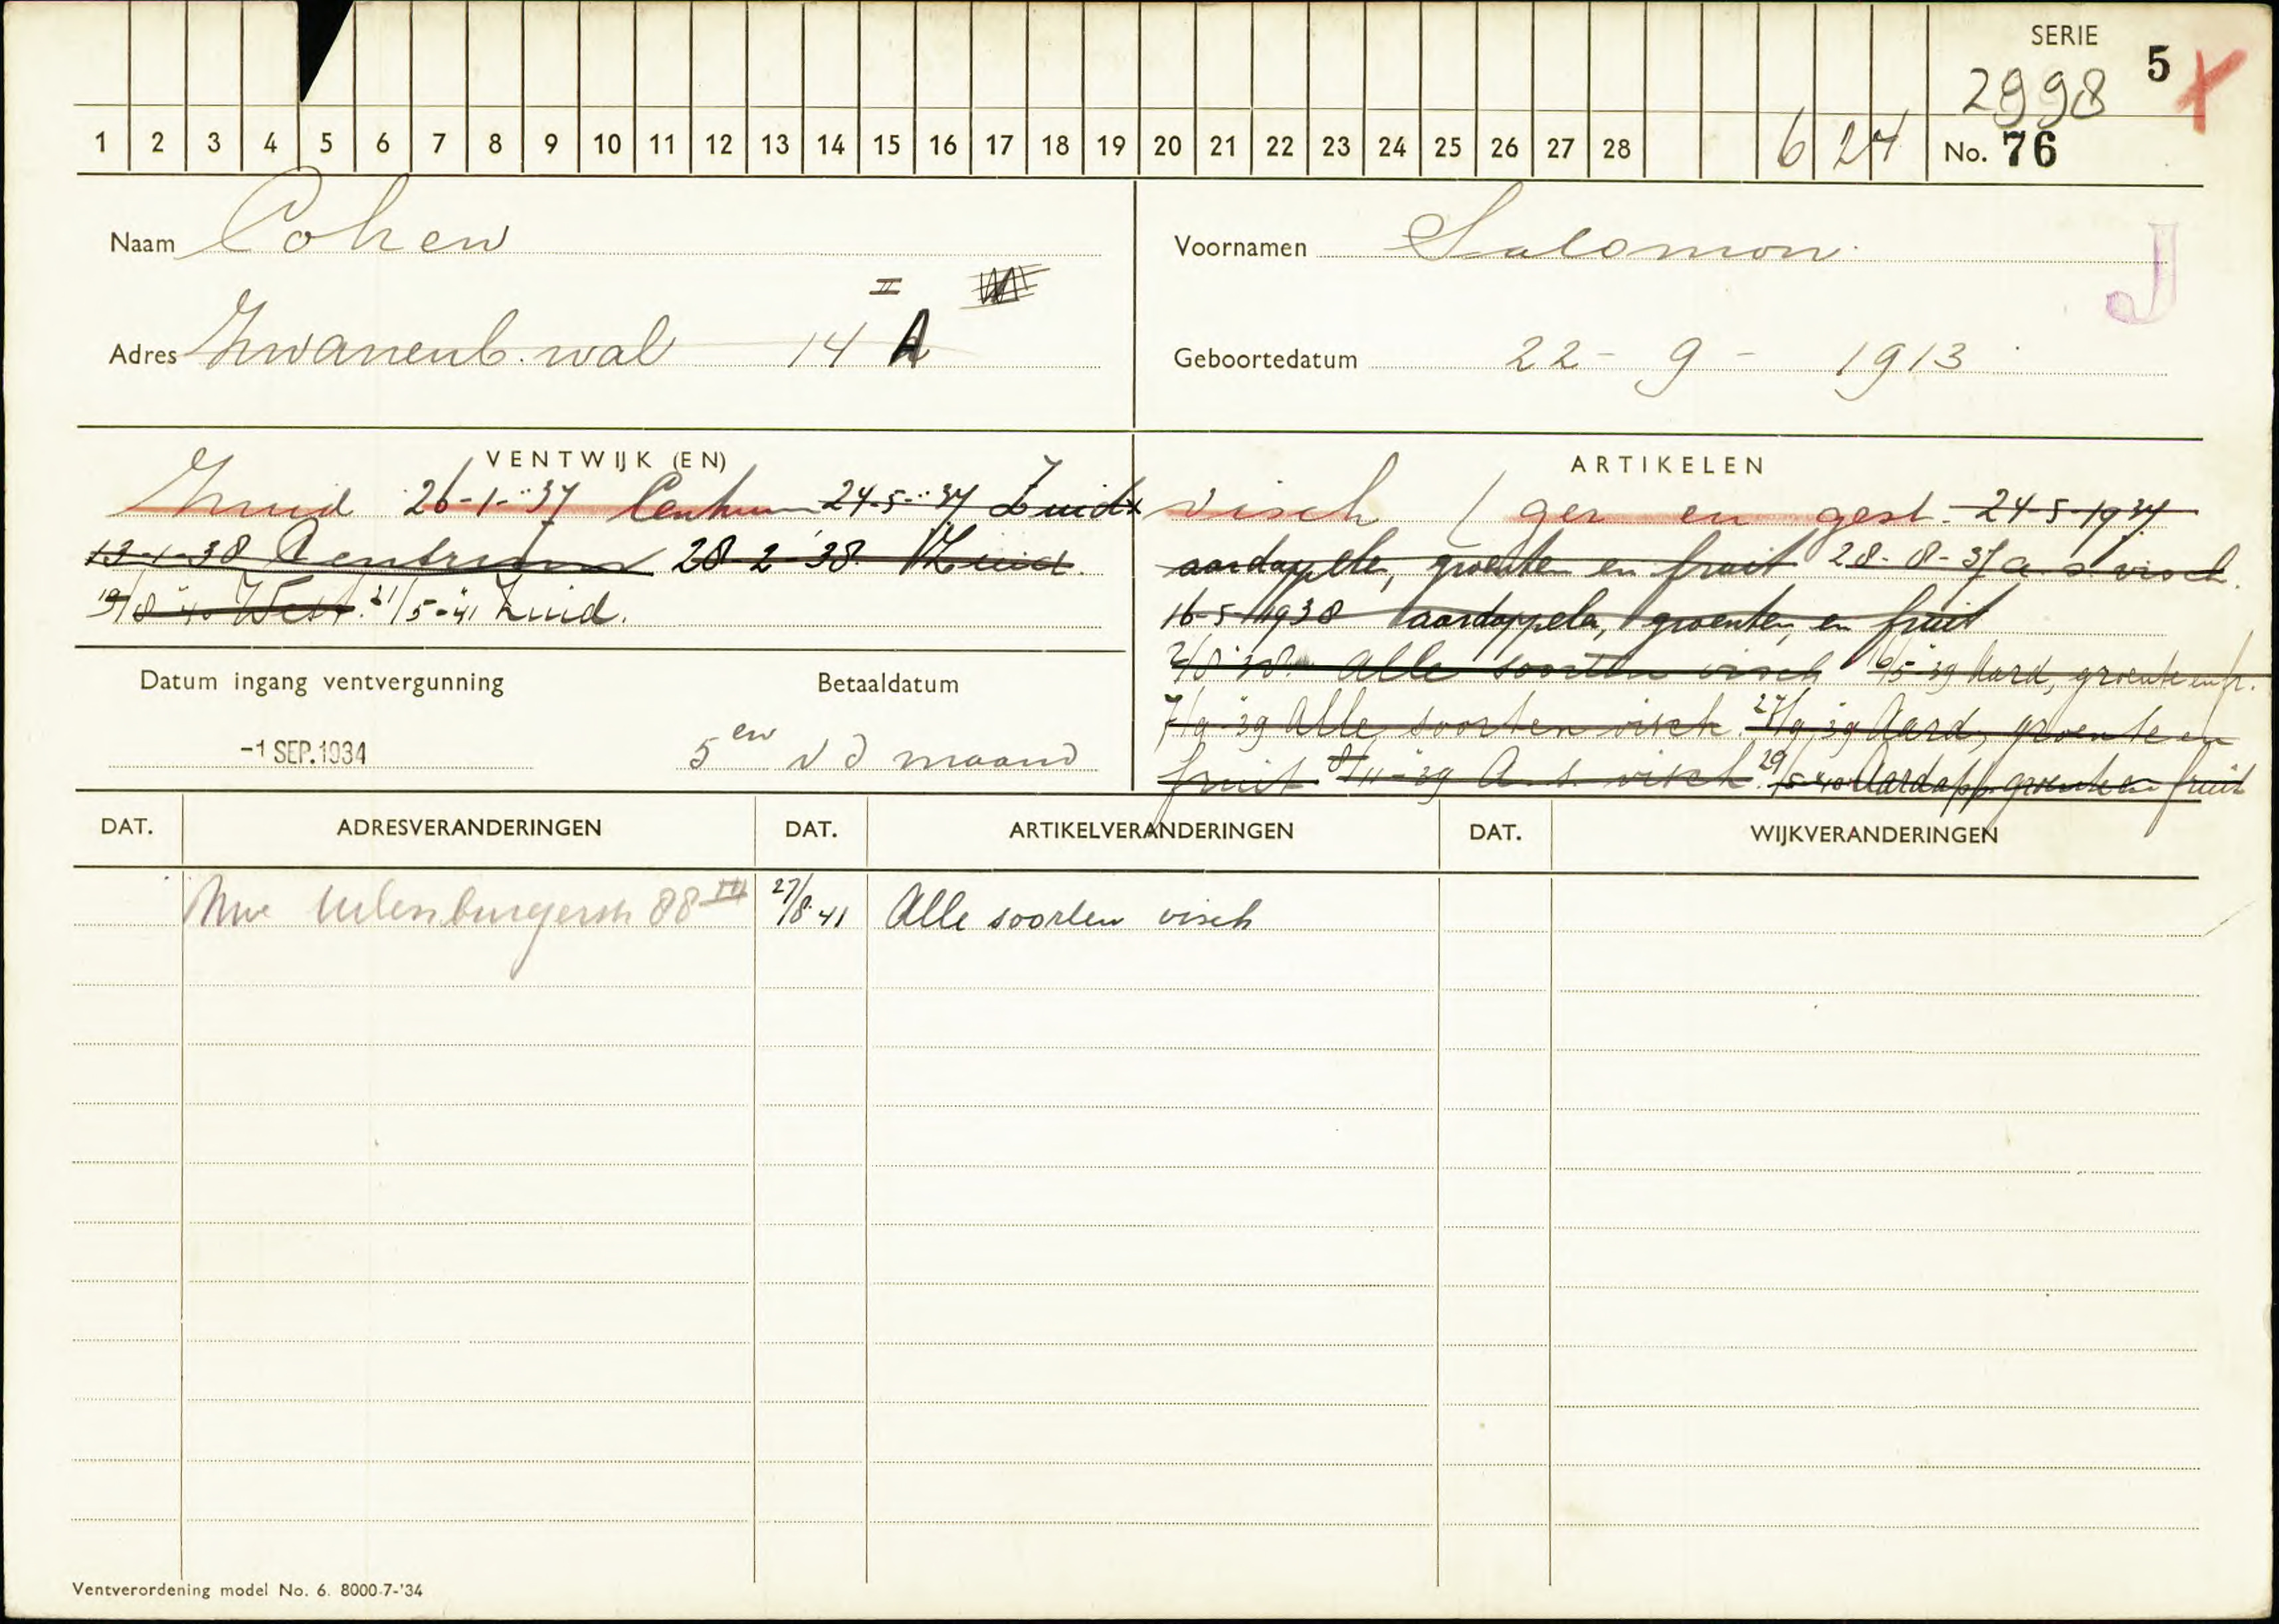 SERIE 5
2998
1 2 3 4 5 6 7 8 9 10 11 12 13 14 15 16 17 18 19 20 21 22 23 24 25 26 27 28 6 24 No. 76
Naam Cohen
Voornamen Salomon
J
II
Adres Zwanenb. wal 14 A
Geboortedatum 22 - 9 - 1913
VENTWIJK (EN)
Zuid 26-1-'37 Centrum 24-5-'37 Zuid
13-1-38 Centrum 28-2-'38 Zuid
19/8-40 West. 21/5-'41 Zuid.
ARTIKELEN
visch (ger en gest. 24-5-1937
aardappelen, groenten en fruit 28-8-37 a. s. visch.
16-5-1938 aardappelen, groenten en fruit
2/8-'38. Alle soorten visch 16/5-'39 Aard, groente en fr.
7/9-'39 Alle soorten visch. 27/9-'39 Aard, groente en
fruit. 8/11-'39 A. s. visch. 29/5-40 Aardapp. groente en fruit
Datum ingang ventvergunning
-1 SEP. 1934
Betaaldatum
5en v d maand
DAT. ADRESVERANDERINGEN DAT. ARTIKELVERANDERINGEN DAT. WIJKVERANDERINGEN
Nwe Uilenburgerstr 88 III 27/8-41 Alle soorten visch
Ventverordening model No. 6. 8000-7-'34